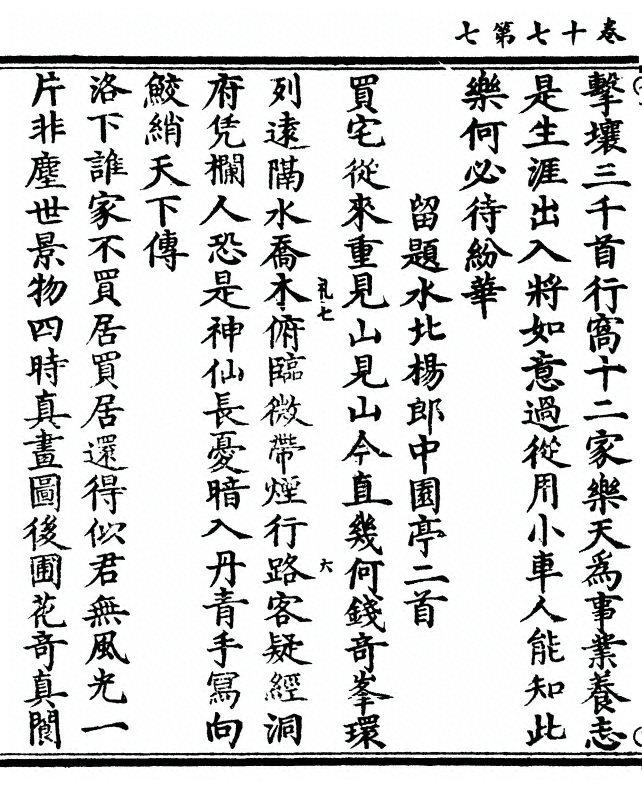 卷十七第七
擊壤三千首行窩十二家樂天為事業養志
是生涯出入將如意過從用小車人能知此
樂何必待紛華
留題水北楊郎中園亭二首
買宅從來重見山見山今直幾何錢奇峯環
列遠隔水喬木俯臨微帶煙行路客疑經洞
礼七
六
府凭欄人恐是神仙長憂暗入丹青手寫向
鮫綃天下傳
洛下誰家不買居買居還得似君無風光一
片非塵世景物四時真畫圖後圃花奇真閬